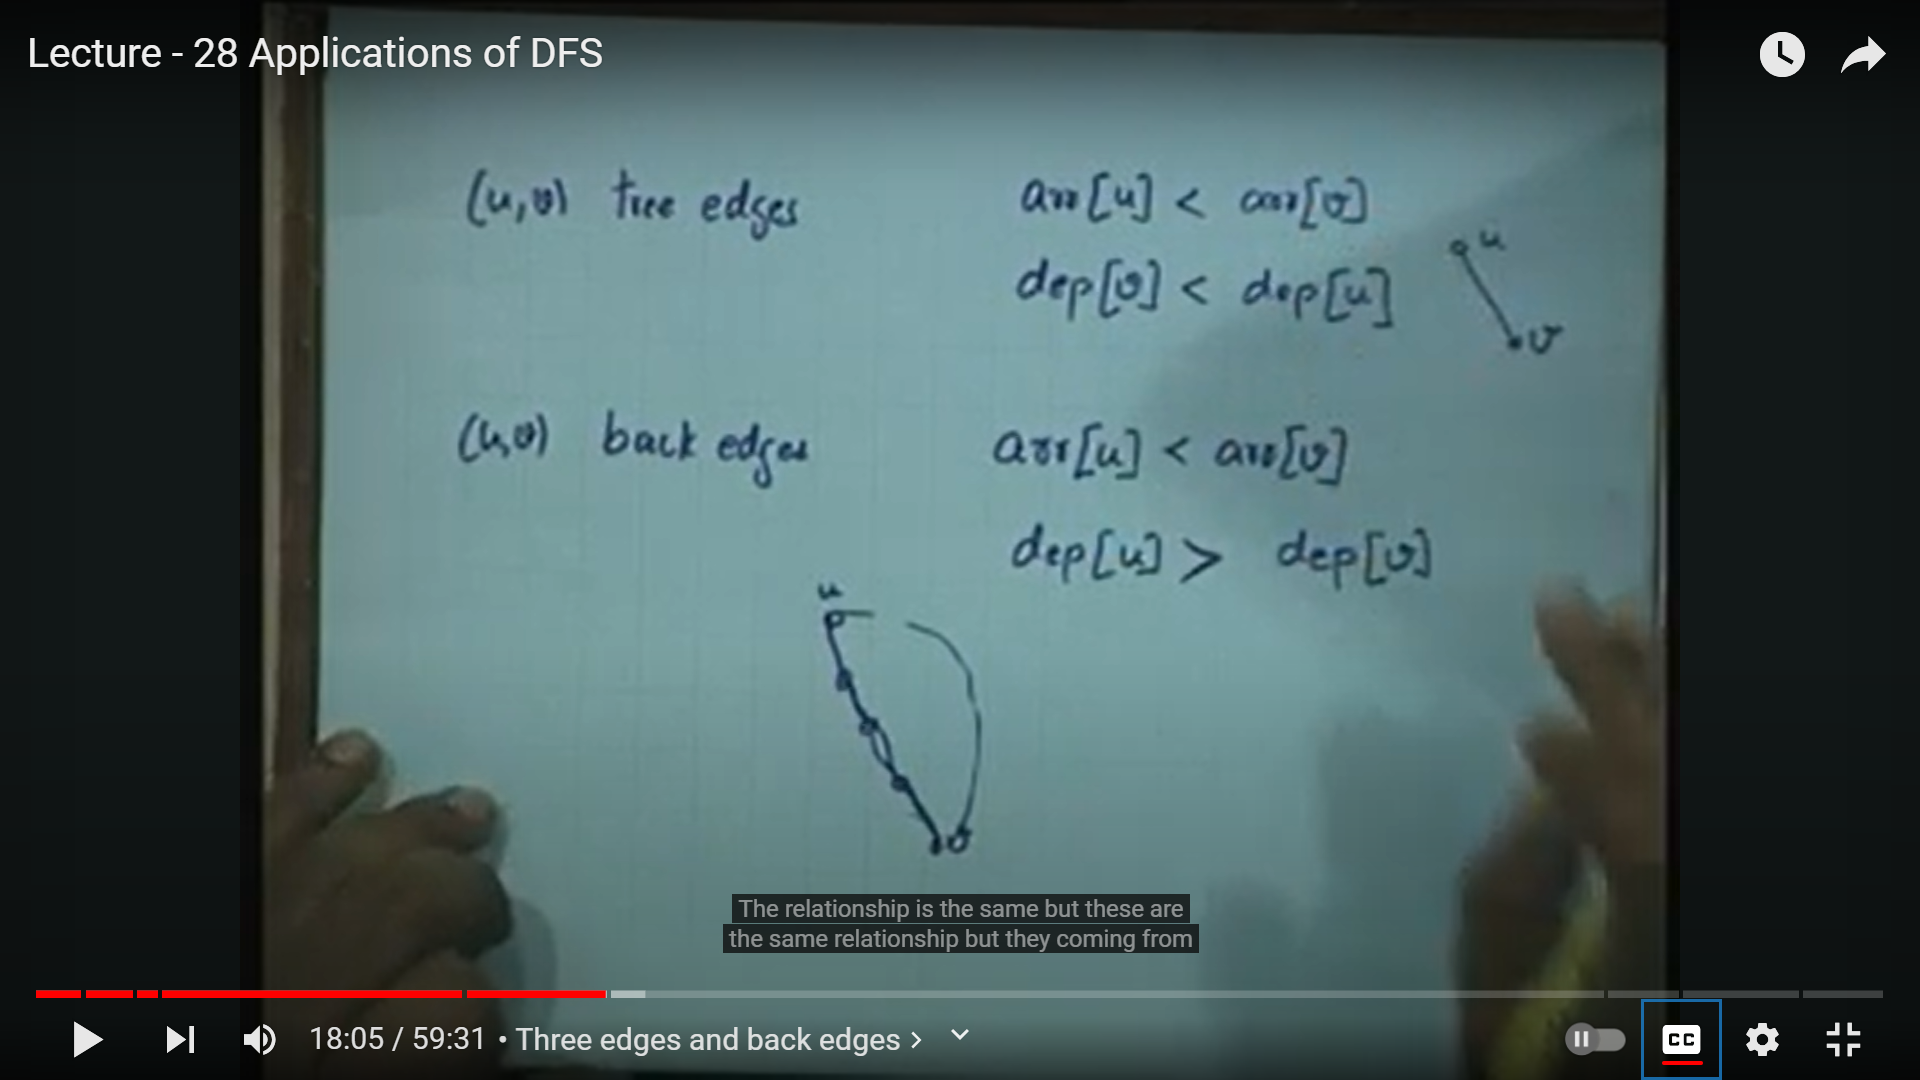 Lecture - 28 Applications of DFS
(u,v) tree edges
arr[u] < arr[v]
dep[v] < dep[u]
u
v
(u,v) back edges
arr[u] < arr[v]
dep[u] > dep[v]
u
v
The relationship is the same but these are
the same relationship but they coming from
18:05 / 59:31 • Three edges and back edges >
CC